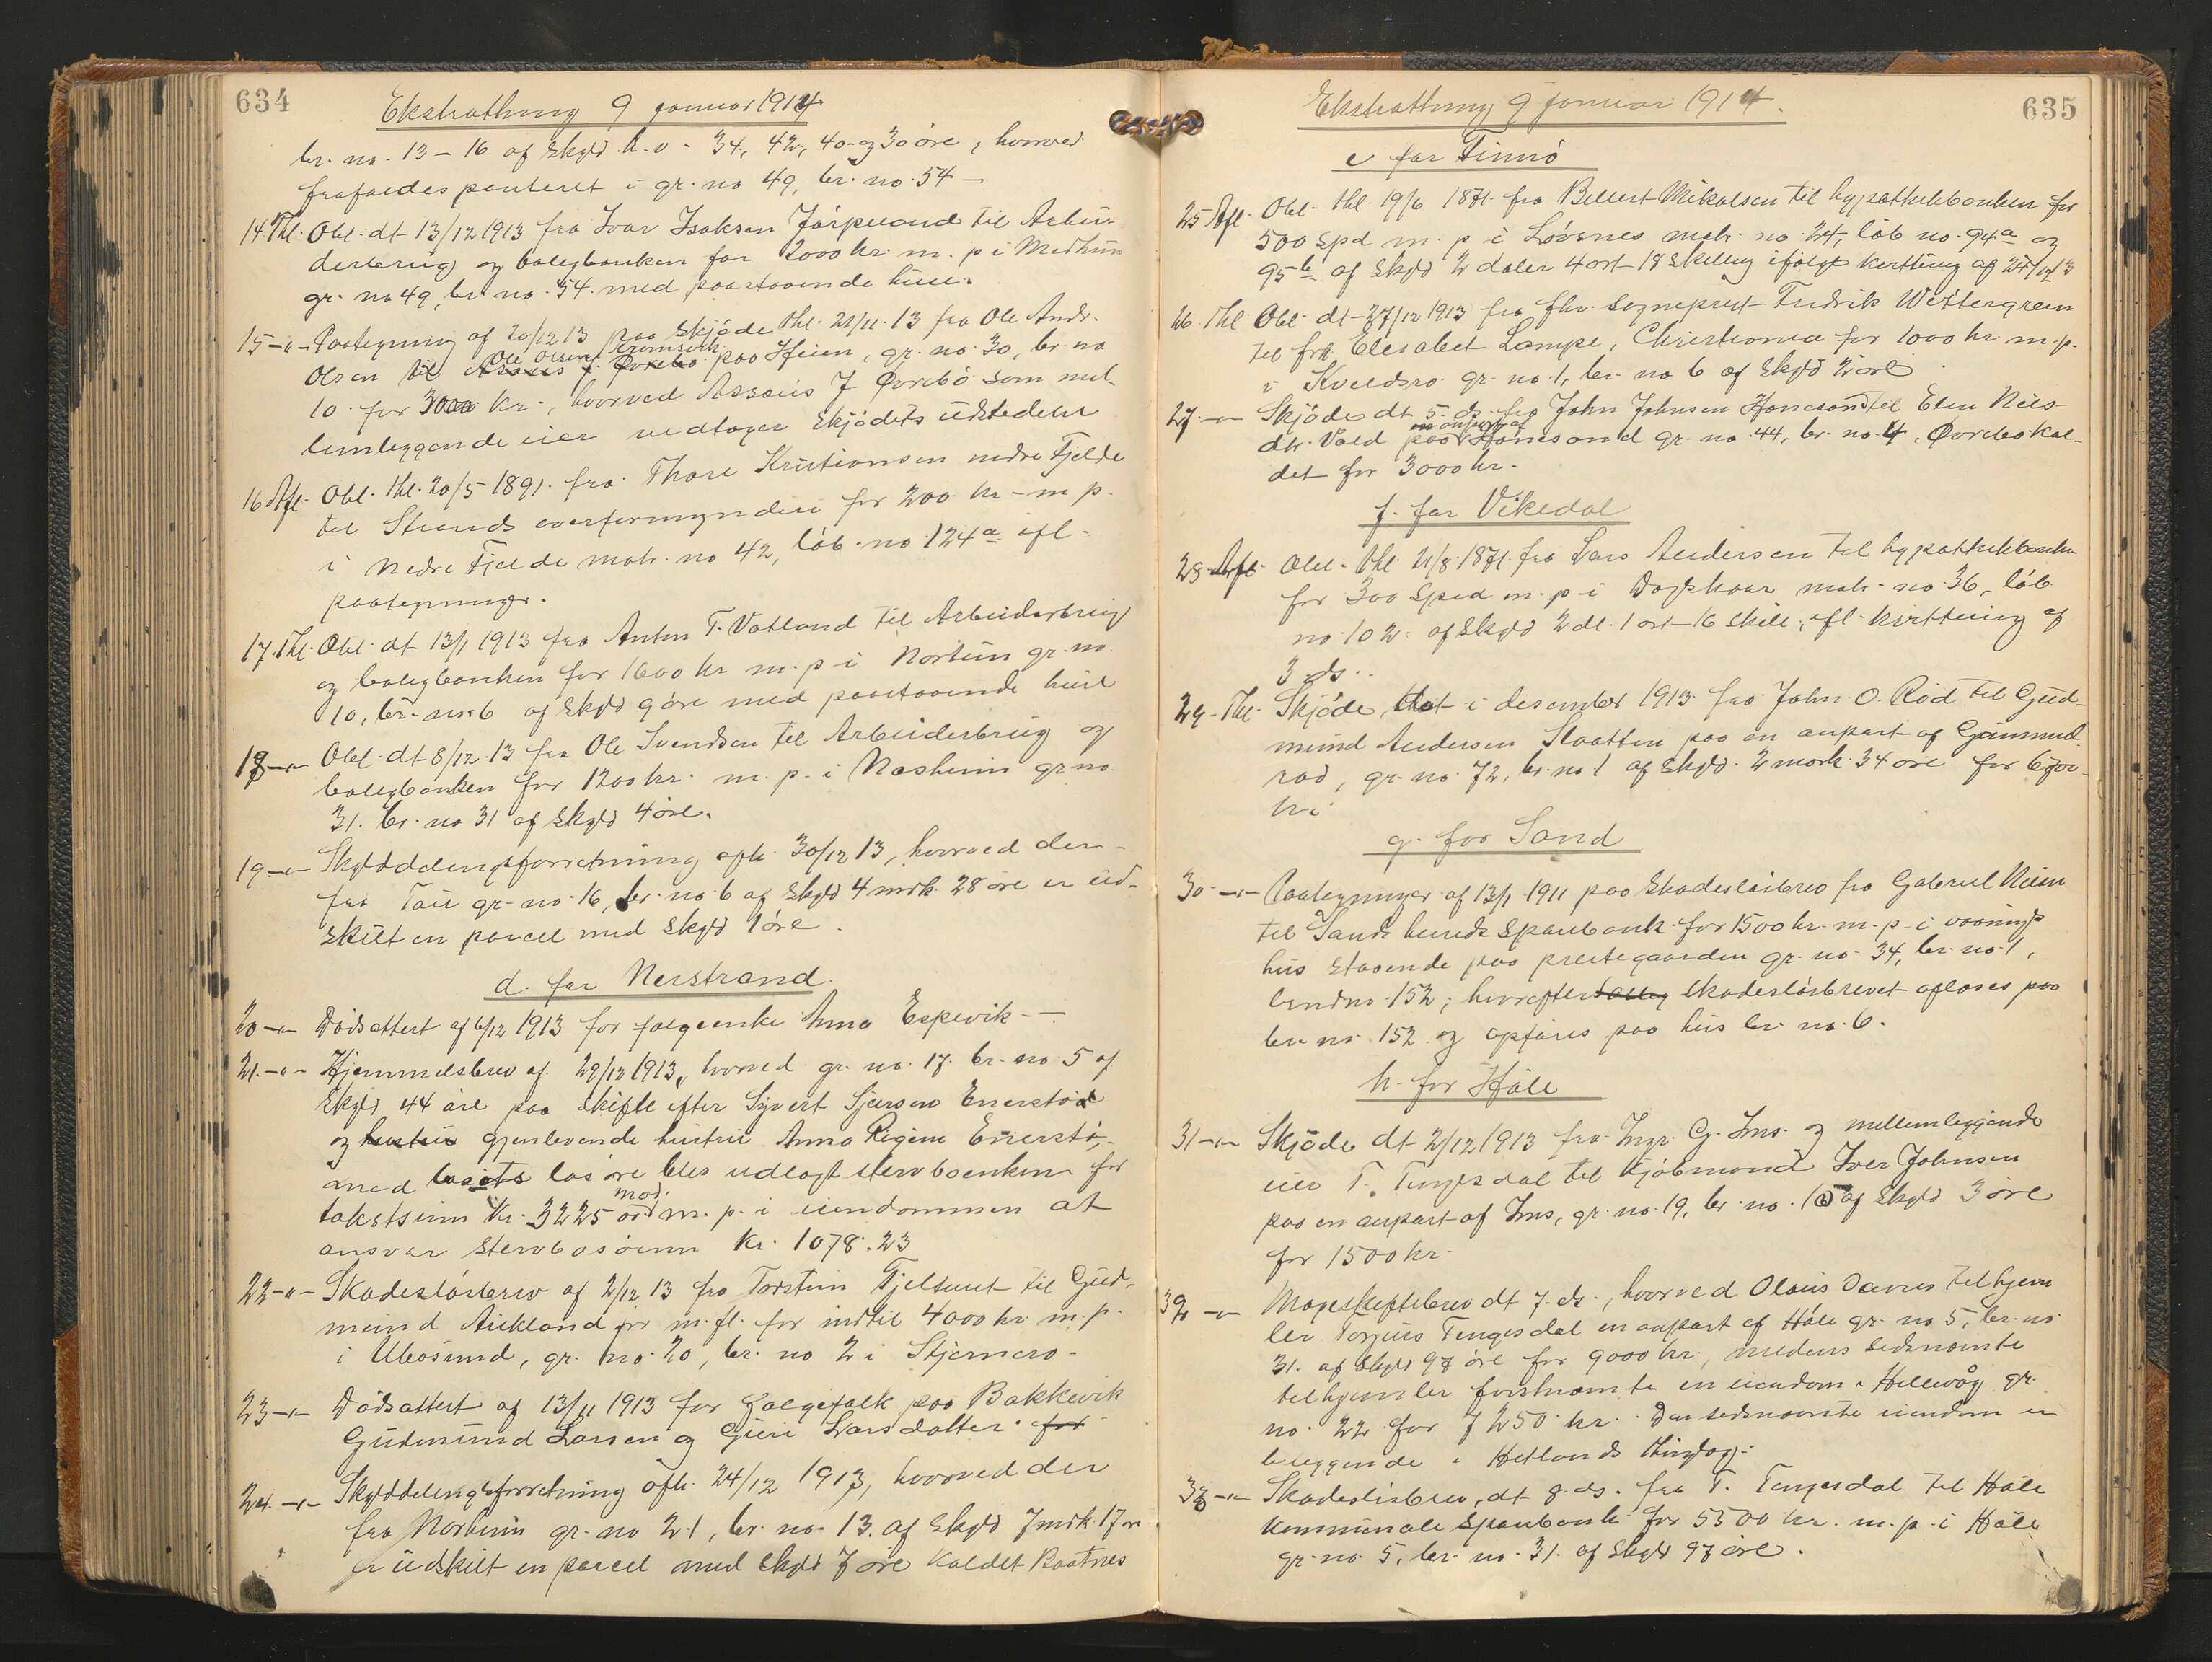 634
Ekstrathing 9 januar 1914
br. no. 13 – 16 af skyld h.v. 34, 42, 40 og 30 øre, hvorved
frafaldes panteret i gr. no 49, br. no. 54 –
14 Thl. Obl. dt 13/12 1913 fra Ivar Isaksen til Arbei-
derbrug og boligbanken for 2000 kr. m. p. i
gr. no 49, br. no. 54. med paastaaende huse.
15 –"– Paategning af 20/12 13 paa skjøde thl. 21/11. 13 fra Ole Andr.
Olsen til Ole Olsen paa Heien, gr. no. 30, br. no
10. for 3000 kr., hvorved Assaris J. Øvrebø som mel-
lemliggende eier vedtager skjødets udstedelse
16 Afl. Obl. thl. 20/5 1891. fra Thore Kristiansen nedre Fjelde
til Strands overformynderi for 200 kr – m p.
i Nedre Fjelde matr. no 42, løb. no 124a ifl.
paategninger.
17. Thl. Obl. dt 13/1 1913 fra Anton T. Vatland til Arbeiderbrug
og boligbanken for 1600 kr m. p. i Norheim gr. no.
10, br. no. 6 af skyld 9 øre med paastaaende huse
18 –"– Obl. dt 8/12. 13 fra Ole Svendsen til Arbeiderbrug og
boligbanken for 1200 kr. m. p. i Nasheim gr no.
31. br. no 31 af skyld 4 øre.
19 –"– Skylddelingsforretning afh. 30/12 13, hvorved der
fra Tau gr. no. 16, br. no. 6 af skyld 4 mrk. 28 øre er ud-
skilt en parcel med skyld 1 øre.
d. for Nerstrand
20 –"– Dødsattest af 6/12 1913 for folgeenke Anna Espevik –
21. –"– Hjemmelsbrev af 29/12 1913, hvorved gr. no. 17. br. no 5 af
skyld 44 øre paa skifte efter Syvert Sjursen Enerstø
og hustru gjenlevende hustru Anna Regine Enerstø,
med løsøre blev udlagt stervboenken for
takstsum kr. 3225 mod m. p. i eiendommen at
ansvar stervbosønnen kr. 1078.23
22 –"– Skadesløsbrev af 2/12 13 fra Torstein Fjeltunt til Gud-
mund Aukland m. fl. for indtil 4000 kr. m. p.
i Ubøsund, gr. no. 20, br. no 2 i Stjernerø.
23 –"– Dødsattest af 13/11 1913 for folgefolk paa Bakkevik
Gudmund Larsen og Guri Larsdatter for
24. –"– Skylddelingsforretning afh. 24/12 1913, hvorved der
fra Norheim gr. no 21, br. no. 13. af skyld 7 mrk. 17 øre
er udskilt en parcel med skyld 7 øre kaldet Raatnes
Ekstrathing 9 januar 1914.
635
e for Finnø
25 Afl. Obl. thl. 19/6 1871. fra Mikalsen til hypothekbanken for
500 spd m. p i Løvsnes matr. no. 24, løb no. 94a og
95b af skyld 2 daler 4 ort 18 skilling ifølge kvittering af
26. Thl. Obl. dt 27/12 1913 fra fhv. sogneprest Fredrik Westergreen
til frk. Elisabet Lampe, Christiania for 1000 kr m. p.
i Kveldsro gr. no. 1, br. no 6 af skyld 2 øre
27. –"– Skjøde dt 5. ds. fra John Johnsen Hanesand til Elen Nils-
dtr. Vald en anpart af Hanesand gr. no. 44, br. no. 4, Øvrebø kal-
det for 3000 kr.
f. for Vikedal
28. Afl. Obl. thl. 21/8. 1871. fra Lars Andersen til hypothekbanken
for 300 spd m. p. i matr. no. 36, løb
no. 102. af skyld 2 dl. 1 ort 16 skill., ifl. kvittering af
3 ds.
29. Thl. Skjøde, dat i desember 1913 fra John O. Rød til Gud-
mund Andersen Slaatten paa en anpart af
rød, gr. no. 72, br. no. 1 af skyld. 2 mark 34 øre for 6700
kr.
g. for Sand
30. –"– Paategninger af 13/1 1911 paa skadesløsbrev fra Gabriel
til Sands herreds sparebank for 1500 kr. m. p. i vaanings
hus staaende paa prestegaarden gr. no. 34, br. no. 1,
bndno. 152; hvorefter skadesløsbrevet afløses paa
br. no. 152 og opføres paa hus br. no. 6.
h. for Høle
31 –"– Skjøde dt 2/12 1913 fra Ingr. G. Ims. og mellemliggende
eier T. Tengesdal til kjøbmand Iver Johnsen
paa en anpart af Ims, gr. no. 19, br. no. 10 af skyld 3 øre
for 1500 kr.
32 –"– Mageskiftebrev dt 7. ds., hvorved Olaus tilhjem
ler Torjus Tengesdal en anpart af Høle gr. no 5, br. no
31. af skyld 97 øre for 9000 kr., medens sidsnævnte
tilhjemler førstnævnte en eiendom i Hellevåg gr.
no. 22 for 7250 kr. Den sidsnævnte eiendom er
beliggende i Hetlands thinglag.
33 –"– Skadesløsbrev, dt 8. ds. fra T. Tengesdal til Høle
kommunale sparebank for 5500 kr. m. p. i Høle
gr. no. 5, br. no. 31. af skyld 97 øre.